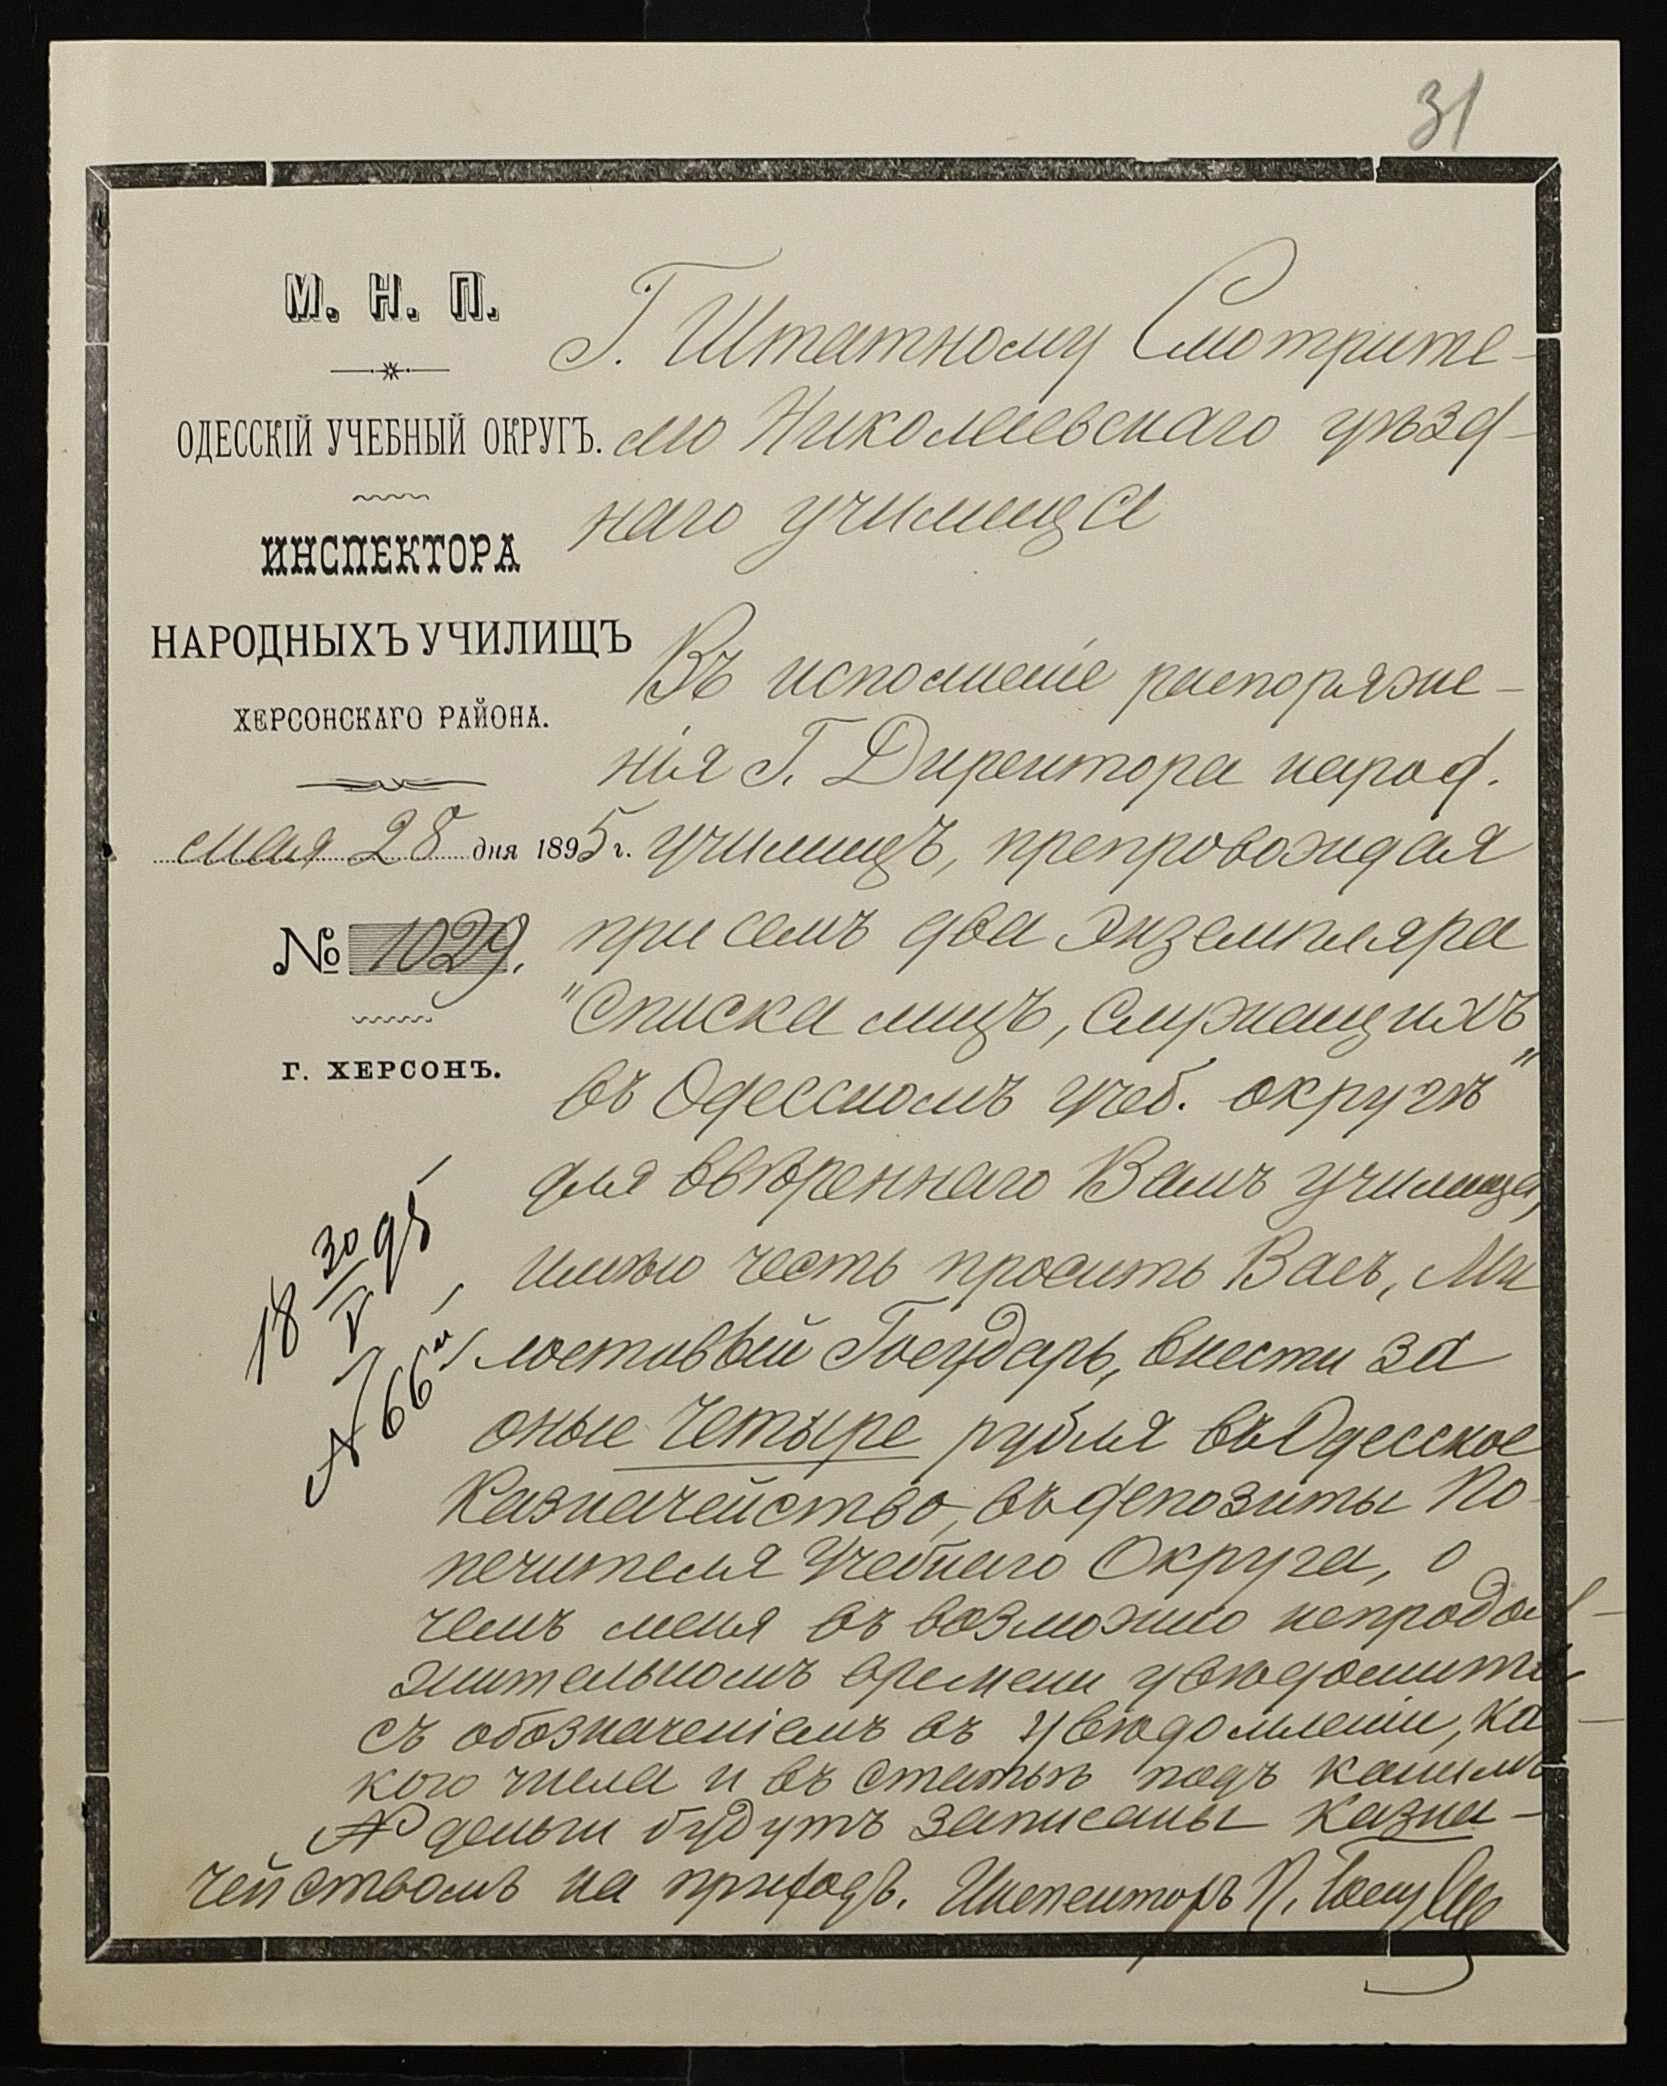 31
М. Н. П.
ОДЕССКІЙ УЧЕБНЫЙ ОКРУГЪ.
ИНСПЕКТОРА
НАРОДНЫХЪ УЧИЛИЩЪ
ХЕРСОНСКАГО РАЙОНА.
мая 28 дня 1895 г.
№ 1029.
Г. ХЕРСОНЪ.
18 30/V 95
№ 66
Г. Штатному Смотрите-
лю Николаевскаго уѣзд-
наго училища
Въ исполненіе распоряже-
нія Г. Директора народ.
училищъ, препровождая
при семъ два экземпляра
"Списка лицъ, служащихъ
въ Одесскомъ учеб. округѣ"
для ввѣреннаго Вамъ училища,
имѣю честь просить Васъ, Ми
лостивый Государь, внести за
оные четыре рубля въ Одесское
Казначейство, въ депозиты По-
печителя Учебнаго Округа, о
чемъ меня въ возможно непродол-
жительномъ времени увѣдомить
съ обозначеніемъ въ увѣдомленіи, ка-
кого числа и въ статьѣ подъ какимъ
№ деньги будутъ записаны казна-
чействомъ на приходъ. Инспекторъ П.